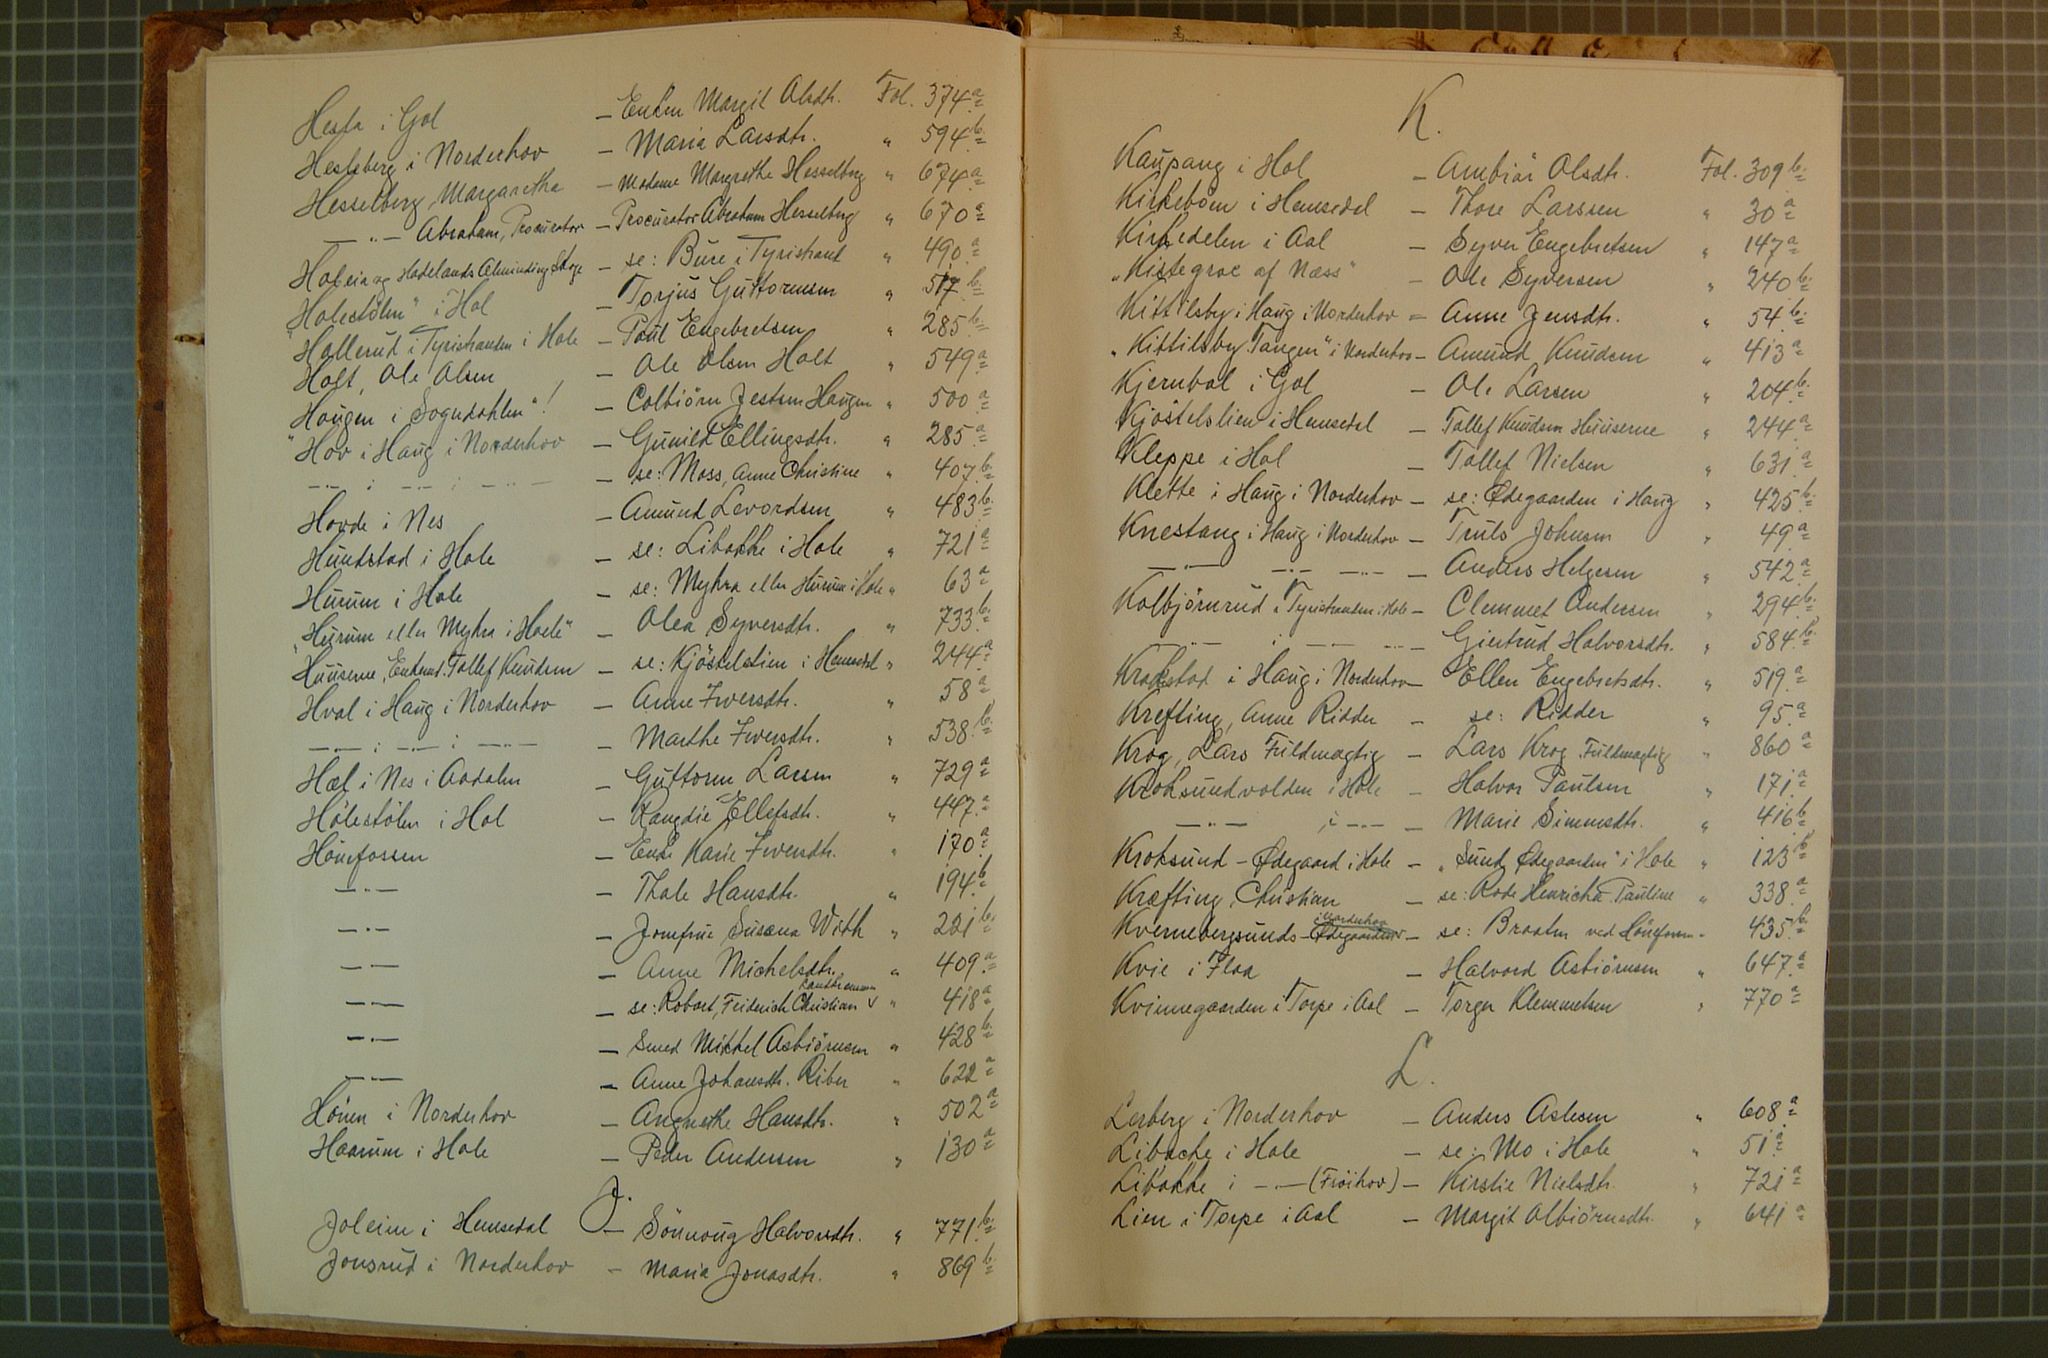 Hesla i Gol — Enken Margit Olsdtr. Fol. 374 a
Hesleberg i Norderhov — Maria Larsdtr. " 594 b.
Hesselberg, Margaretha — Madame Margrethe Hesselberg " 674 a
— " — Abraham, Procurator — Procurator Abraham Hesselberg " 670 a
Holeia og Hadelands Alminding Skoge — se: Bure i Tyristrand " 490 a
"Holestölen" i Hol — Torjus Guttormsen " 517 b.
"Hollerud i Tyristranden i Hole — Poul Engebretsen " 285 b.
Holt, Ole Olsen — Ole Olsen Holt " 549 a
Hougen i Sogndahlen"! — Colbiörn Jestsen Haugen " 500 a
"Hov i Haug i Norderhov — Gunild Ellingsdtr. " 285 a
— " — i — " — i — " — — se: Moss, Anne Christine " 407 b.
Hovde i Nes — Amund Levordsen " 483 b.
Hundstad i Hole — se: Libakke i Hole " 721 a
Hurum i Hole — se: Myhra eller Hurum i Hole " 63 a
"Hurum eller Myhra i Hole" — Olea Syversdtr. " 733 b.
Huuserne, Enkemd. Tollef Knudsen — se: Kjöstelslien i Hemsedal " 244 a
Hval i Haug i Norderhov — Anne Iversdtr. " 58 a
— " — i — " — i — " — — Marthe Iversdtr. " 538 b.
Hæl i Nes i Aadalen — Guttorm Larsen " 729 a
Hölestölen i Hol — Rangdie Ellefsdtr. " 447 a
Hönefossen — Enke Karie Iversdtr. " 170 a
— " — — Thale Hansdtr. " 194 b
— " — — Jomfrue Susana With " 221 b.
— " — — Anne Michelsdtr. " 409 a
— " — — se: Robart, Friderich Christian Landtmann " 418 a
— " — — Smed Mikkel Asbiörnsen " 428 b.
— " — — Anne Johansdtr. Riber " 622 a
Hönen i Norderhov — Angrethe Hansdtr. " 502 a
Haarum i Hole — Peder Andersen " 130 a
J.
Joleim i Hemsedal — Sönnoug Halvorsdtr. " 771 b.
Jonsrud i Norderhov — Maria Jonasdtr. " 869 b.
K.
Kaupang i Hol — Ambiör Olsdtr. Fol. 309 b.
Kirkeböen i Hemsedal — Thore Larssen " 30 a
Kirkedelen i Aal — Syver Engebretsen " 147 a
"Kistegrae af Næss" — Ole Syversen " 240 b.
Kittilsby i Haug i Norderhov — Anne Jensdtr. " 54 b.
"Kittilsby Tangen" i Norderhov — Amund Knudsen " 413 a
Kjernbal i Gol — Ole Larsen " 204 b.
Kjöstelslien i Hemsedal — Tollef Knudsen Huuserne " 244 a
Kleppe i Hol — Tollef Nielsen " 631 a
Klette i Haug i Norderhov — se: Ødegaarden i Haug " 425 b.
Knestang i Haug i Norderhov — Truls Johnsen " 49 a
— " — — " — — " — — Anders Helgesen " 542 a
Kolbjörnrud i Tyristranden i Hole — Clemmet Andersen " 294 b.
— " — i — " — — " — — Giertrud Halvorsdtr. " 584 b.
Krakstad i Haug i Norderhov — Ellen Engebretsdtr. " 519 a
Krefting, Anne Ridder — se: Ridder " 95 a
Krog, Lars Fuldmægtig — Lars Krog Fuldmægtig " 860 a
Kroksundvolden i Hole — Halvor Paulsen " 171 a
— " — i — " — — Marie Simensdtr. " 416 b
Kroksund - Ødegaard i Hole — "Sund Ødegaarden" i Hole " 123 b
Kræfting, Christian — se: Rode Henricha Pauline " 338 a
Kvernebergsunds-Ødegaarden i Norderhov — se: Braaten ved Hönefossen " 435 b.
Kvie i Flaa — Halvord Asbiörnsen " 647 a
Kvinnegaarden i Torpe i Aal — Torger Klemmetsen " 770 a
L.
Lerberg i Norderhov — Anders Aslesen " 608 a
Libache i Hole — se: Mo i Hole " 51 a
Libakke i — " — (Fröihov) — Kirstie Nielsdtr. " 721 a
Lien i Torpe i Aal — Margit Olbiörnsdtr. " 641 a